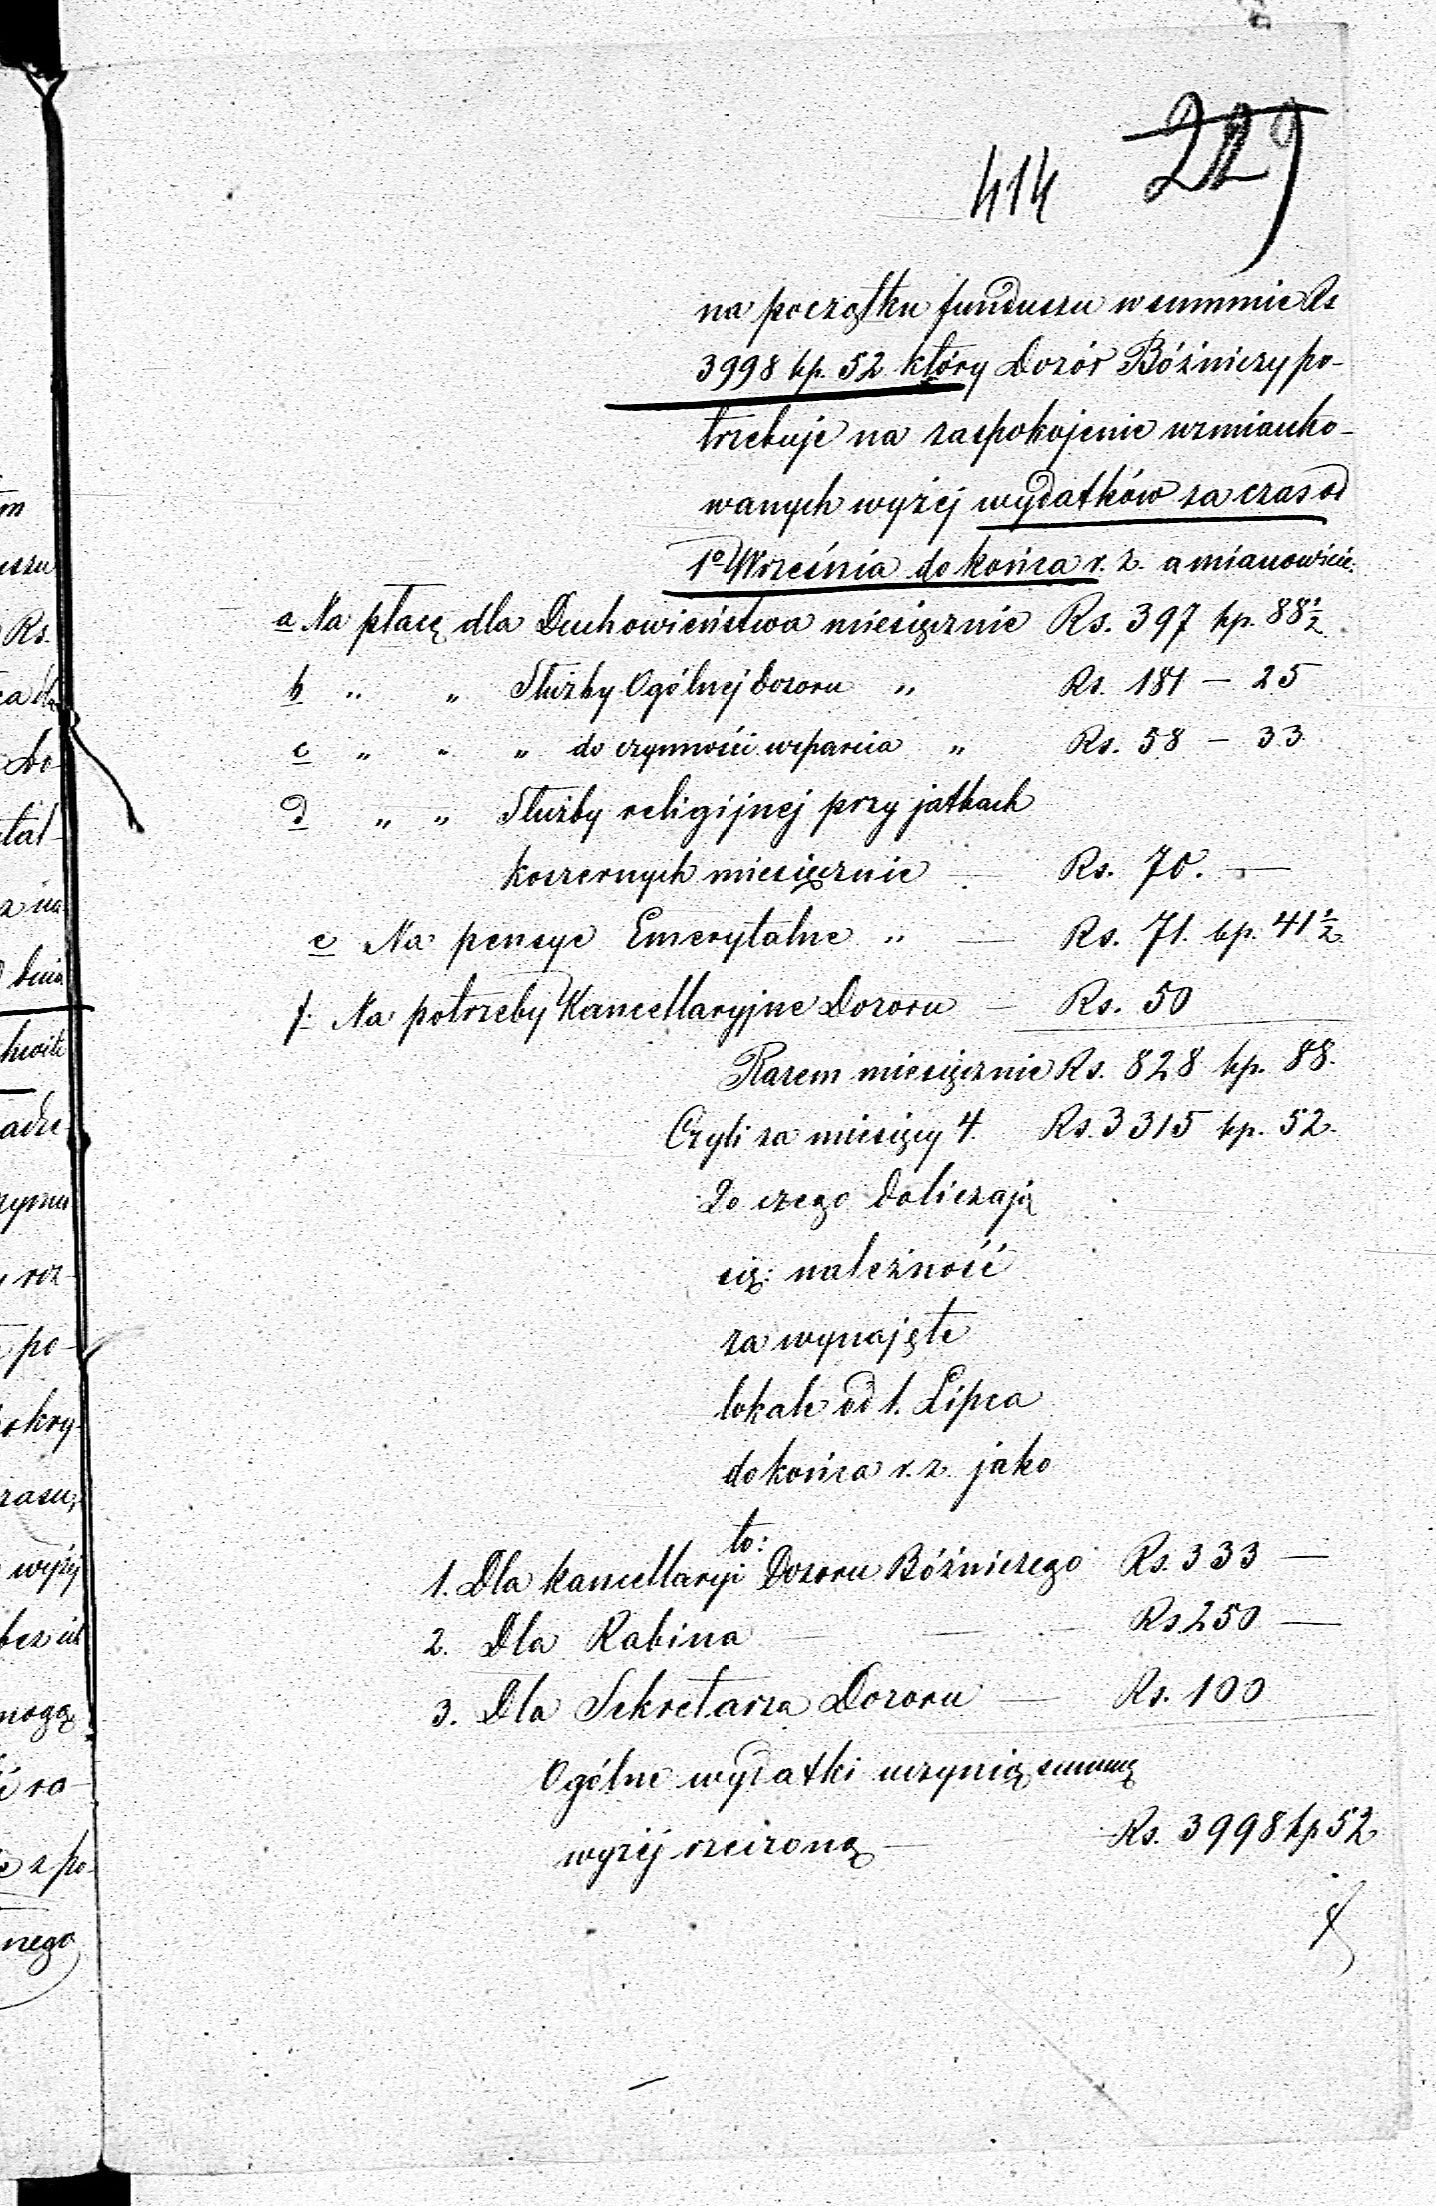 414 229
na początku funduszu w summie Rs
3998 kp. 52 który Dozór Bóźniczy po-
trzebuje na zaspokojenie wzmianko-
wanych wyżej wydatków za czas od
1º Września do końca r. z. a mianowicie.
a Na płacę dla Duchowieństwa miesięcznie Rs. 397 kp. 88½
b " " Służby Ogólnej Dozoru " Rs. 181 — 25
c " " " do czynności wsparcia " Rs. 58 — 33
d " " Służby religijnej przy jatkach
koszernych miesięcznie — Rs. 70. —
e Na pensye Emerytalne " — Rs. 71. kp. 41½
f. Na potrzeby Kancellaryjne Dozoru — Rs. 50
Razem miesięcznie Rs. 828 kp. 88.
Czyli za miesięcy 4. Rs. 3315 kp. 52.
Do czego doliczają
się: należność
za wynajęte
lokale od 1. Lipca
do końca r. z. jako
to:
1. Dla kancellaryi Dozoru Bóźniczego Rs. 333 —
2. Dla Rabina — — Rs. 250 —
3. Dla Sekretarza Dozoru — Rs. 100
Ogólne wydatki uczynią summę
wyżej rzeczoną — Rs. 3998 kp 52